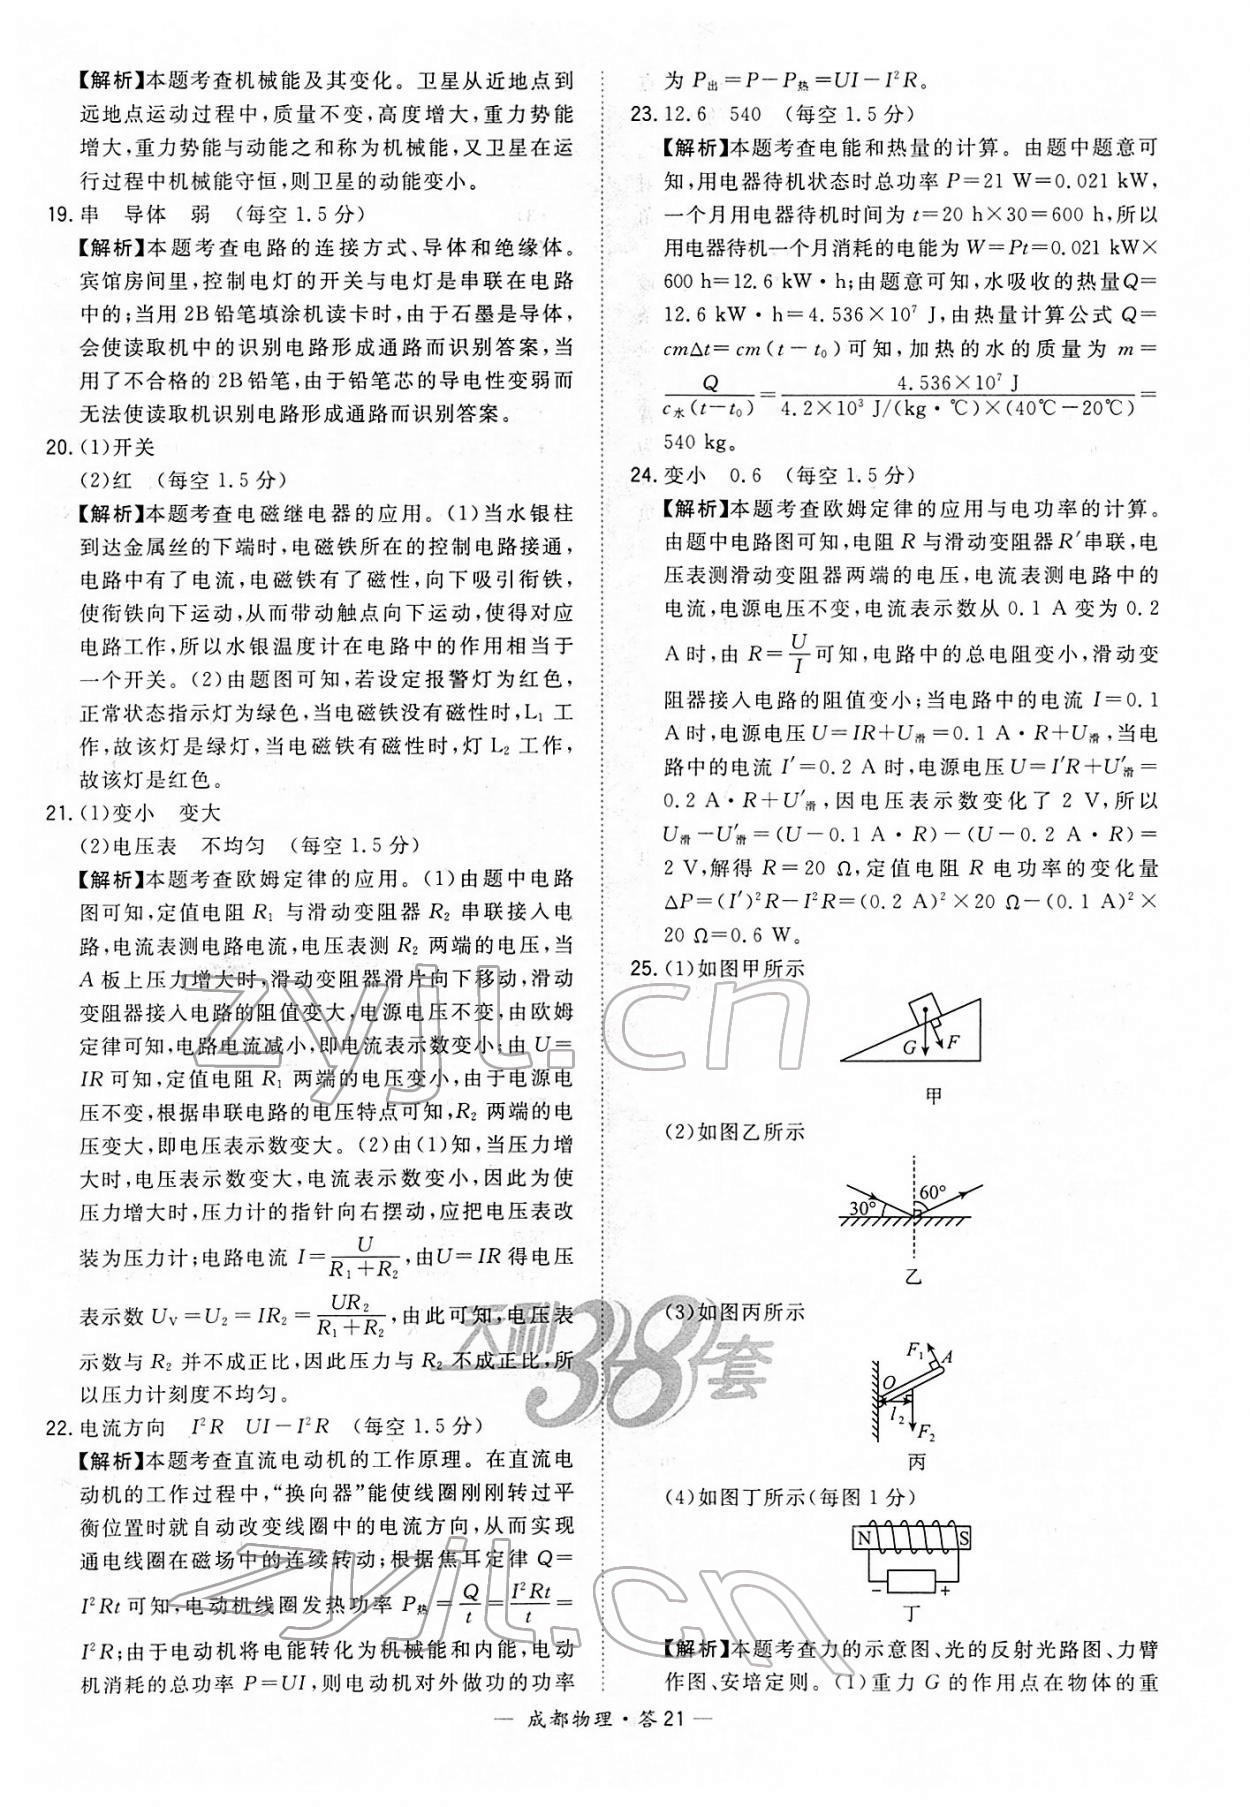 【解析】本题考查机械能及其变化。卫星从近地点到
远地点运动过程中,质量不变,高度增大,重力势能
增大,重力势能与动能之和称为机械能,又卫星在运
行过程中机械能守恒,则卫星的动能变小。
19. 串 导体 弱 (每空1.5分)
【解析】本题考查电路的连接方式、导体和绝缘体。
宾馆房间里,控制电灯的开关与电灯是串联在电路
中的;当用2B铅笔填涂机读卡时,由于石墨是导体,
会使读取机中的识别电路形成通路而识别答案,当
用了不合格的2B铅笔,由于铅笔芯的导电性变弱而
无法使读取机识别电路形成通路而识别答案。
20. (1)开关
(2)红 (每空1.5分)
【解析】本题考查电磁继电器的应用。(1)当水银柱
到达金属丝的下端时,电磁铁所在的控制电路接通,
电路中有了电流,电磁铁有了磁性,向下吸引衔铁,
使衔铁向下运动,从而带动触点向下运动,使得对应
电路工作,所以水银温度计在电路中的作用相当于
一个开关。(2)由题图可知,若设定报警灯为红色,
正常状态指示灯为绿色,当电磁铁没有磁性时,L₁ 工
作,故该灯是绿灯,当电磁铁有磁性时,灯 L₂ 工作,
故该灯是红色。
21. (1)变小 变大
(2)电压表 不均匀 (每空1.5分)
【解析】本题考查欧姆定律的应用。(1)由题中电路
图可知,定值电阻 R₁ 与滑动变阻器 R₂ 串联接入电
路,电流表测电路电流,电压表测 R₂ 两端的电压,当
A 板上压力增大时,滑动变阻器滑片向下移动,滑动
变阻器接入电路的阻值变大,电源电压不变,由欧姆
定律可知,电路电流减小,即电流表示数变小;由 U=
IR 可知,定值电阻 R₁ 两端的电压变小,由于电源电
压不变,根据串联电路的电压特点可知,R₂ 两端的电
压变大,即电压表示数变大。(2)由(1)知,当压力增
大时,电压表示数变大,电流表示数变小,因此为使
压力增大时,压力计的指针向右摆动,应把电压表改
装为压力计;电路电流 I=U/(R₁+R₂),由U=IR 得电压
表示数 Uᵥ=U₂=IR₂=UR₂/(R₁+R₂),由此可知,电压表
示数与 R₂ 并不成正比,因此压力与 R₂ 不成正比,所
以压力计刻度不均匀。
22. 电流方向 I²R UI-I²R (每空1.5分)
【解析】本题考查直流电动机的工作原理。在直流电
动机的工作过程中,“换向器”能使线圈刚刚转过平
衡位置时就自动改变线圈中的电流方向,从而实现
通电线圈在磁场中的连续转动;根据焦耳定律 Q=
I²Rt 可知,电动机线圈发热功率 P热=Q/t=I²Rt/t=
I²R;由于电动机将电能转化为机械能和内能,电动
机消耗的总功率 P=UI,则电动机对外做功的功率
为 P出=P-P热=UI-I²R。
23. 12.6 540 (每空1.5分)
【解析】本题考查电能和热量的计算。由题中题意可
知,用电器待机状态时总功率 P=21 W=0.021 kW,
一个月用电器待机时间为 t=20 h×30=600 h,所以
用电器待机一个月消耗的电能为 W=Pt=0.021 kW×
600 h=12.6 kW·h;由题意可知,水吸收的热量Q=
12.6 kW·h=4.536×10⁷ J,由热量计算公式 Q=
cmΔt=cm(t-t₀)可知,加热的水的质量为 m=
Q/(c水(t-t₀))=4.536×10⁷ J/(4.2×10³ J/(kg·℃)×(40℃-20℃))=
540 kg。
24. 变小 0.6 (每空1.5分)
【解析】本题考查欧姆定律的应用与电功率的计算。
由题中电路图可知,电阻 R 与滑动变阻器R′串联,电
压表测滑动变阻器两端的电压,电流表测电路中的
电流,电源电压不变,电流表示数从 0.1 A 变为 0.2
A时,由 R=U/I可知,电路中的总电阻变小,滑动变
阻器接入电路的阻值变小;当电路中的电流 I=0.1
A时,电源电压U=IR+U滑=0.1 A·R+U滑,当电
路中的电流 I′=0.2 A时,电源电压U=I′R+U′滑=
0.2 A·R+U′滑,因电压表示数变化了 2 V,所以
U滑-U′滑=(U-0.1 A·R)-(U-0.2 A·R)=
2 V,解得 R=20 Ω,定值电阻 R 电功率的变化量
ΔP=(I′)²R-I²R=(0.2 A)²×20 Ω-(0.1 A)²×
20 Ω=0.6 W。
25. (1)如图甲所示
G F
甲
(2)如图乙所示
30° 60°
乙
(3)如图丙所示
F₁ A
O
l₂
F₂
丙
(4)如图丁所示(每图1分)
N S
- +
丁
【解析】本题考查力的示意图、光的反射光路图、力臂
作图、安培定则。(1)重力 G 的作用点在物体的重
— 成都物理·答21 —
zyjl.cn
天利38套
zyjl.cn